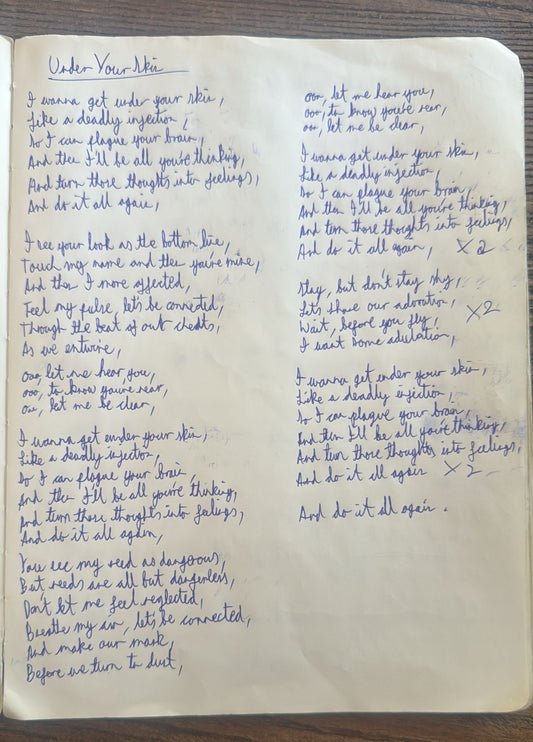 Under Your Skin
I wanna get under your skin,
Like a deadly injection,
So I can plague your brain,
And then I'll be all you're thinking,
And turn those thoughts into feelings,
And do it all again,
I see your look as the bottom line,
Touch my name and then you're mine,
And then I more affected,
Feel my pulse, let's be connected,
Through the beat of out chests,
As we entwine,
ooo, let me hear you,
ooo, to know you're near,
ooo, let me be clear,
I wanna get under your skin,
Like a deadly injection,
So I can plague your brain,
And then I'll be all you're thinking,
And turn those thoughts into feelings,
And do it all again,
You see my need as dangerous,
But needs are all but dangerless,
Don't let me feel neglected,
Breathe my air, lets be connected,
And make our mark,
Before we turn to dust,
ooo, let me hear you,
ooo, to know you're near,
ooo, let me be clear,
I wanna get under your skin,
Like a deadly injection,
So I can plague your brain,
And then I'll be all you're thinking,
And turn those thoughts into feelings,
And do it all again, x2
Stay, but don't stay shy,
Lets share our adoration,
Wait, before you fly, x2
I want some adulation,
I wanna get under your skin,
Like a deadly injection,
So I can plague your brain,
And then I'll be all you're thinking,
And turn those thoughts into feelings,
And do it all again x2
And do it all again.